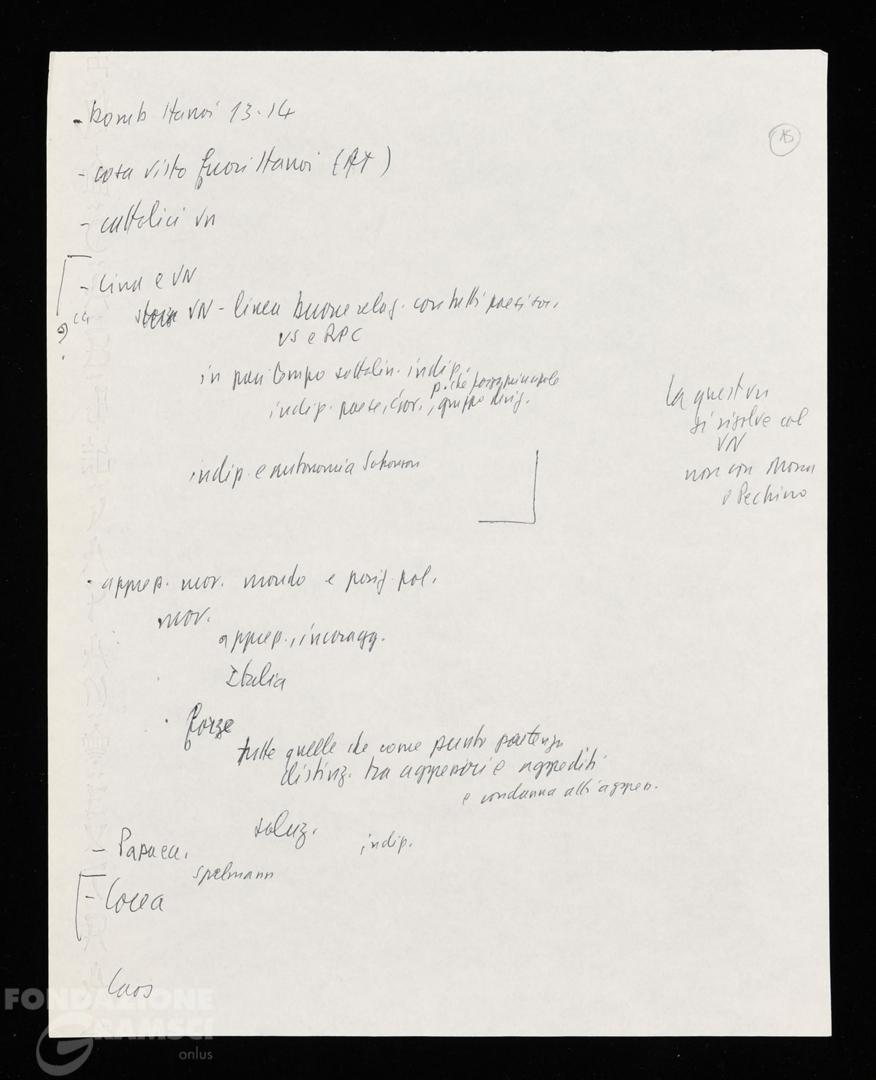 15
- bomb Hanoi 13-14
- cosa visto fuori Hanoi (  )
- cattolici VN
- Cina e VN
VN - linea buone relaz. con tutti paesi soc.
US e RPC
in pari tempo sottolin. indip.
indip. paese, cioè, gruppo dirig.
indip. e autonomia
La quest vn
si risolve col
VN
non con Mosca
o Pechino
- apprez. mov. mondo e posiz. pol.
mov.
apprez., incoragg.
Italia
forze
tutte quelle che come punto partenza
distinz. tra aggressori e aggrediti
e condanna atti aggres.
soluz.
indip.
- Papa ecc.
spelmann
- Corea
Laos
FONDAZIONE
GRAMSCI
onlus